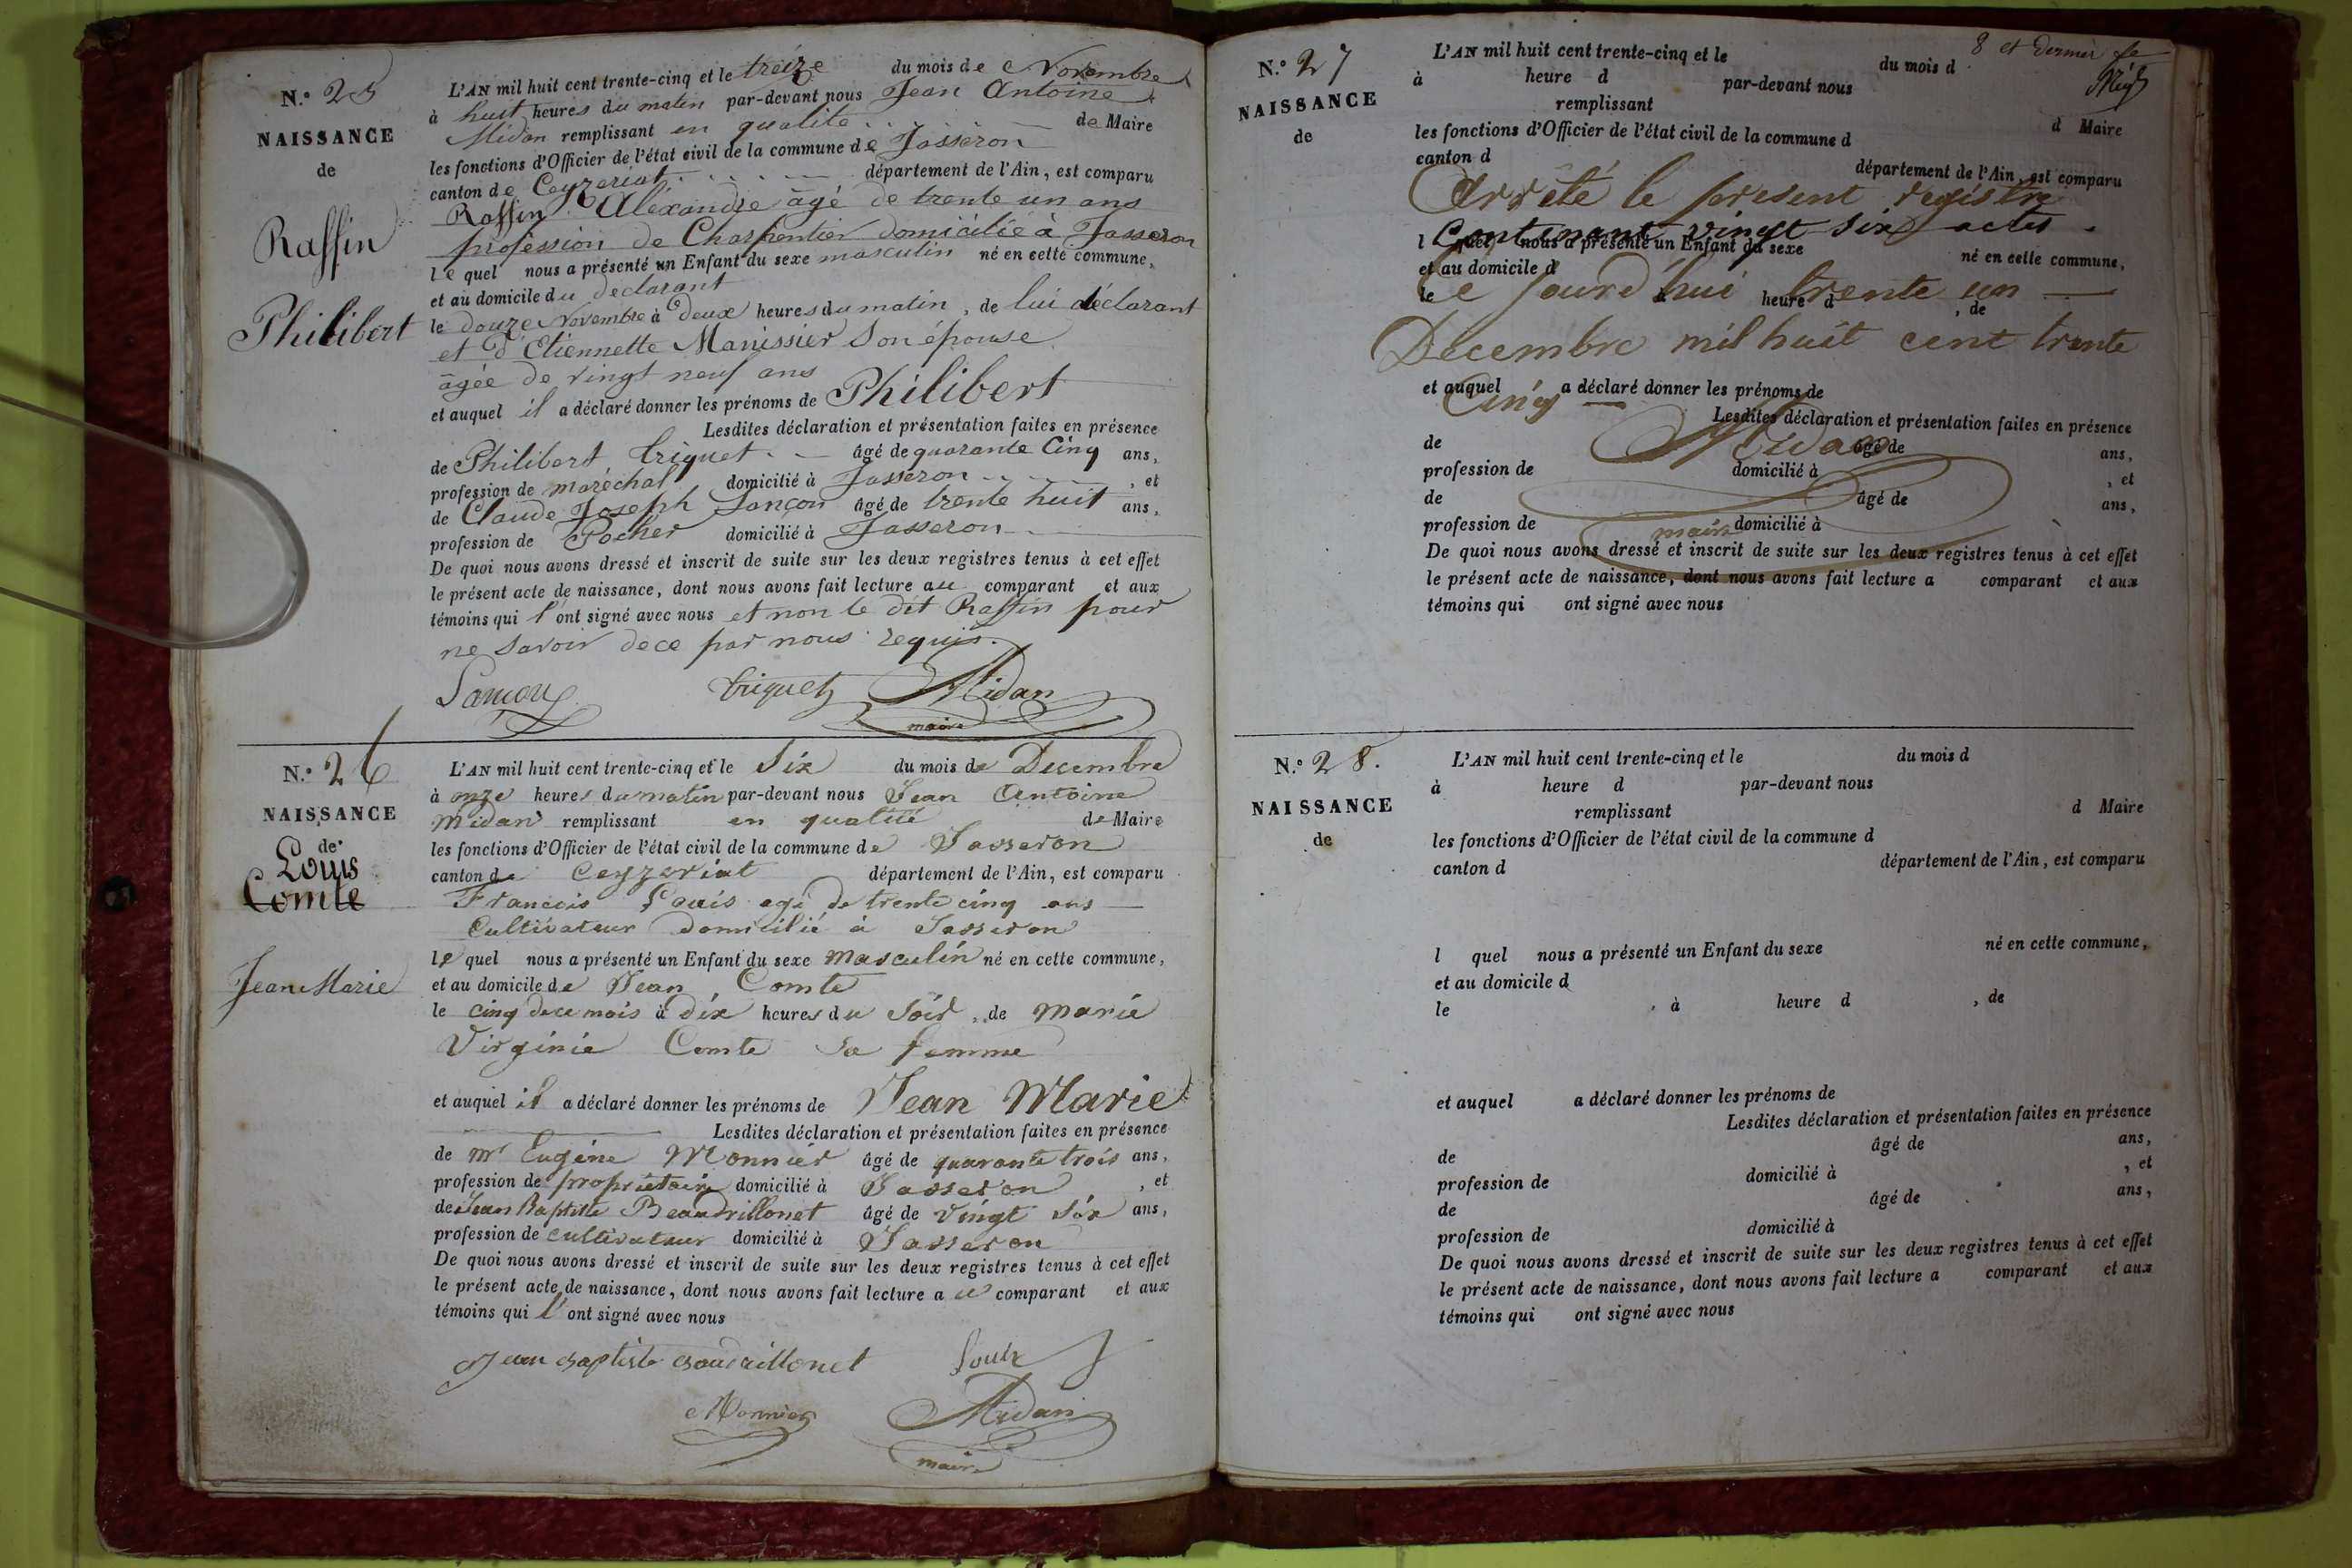 N.º 25
NAISSANCE
de
Raffin
Philibert
L'AN mil huit cent trente-cinq et le treize du mois de Novembre
à huit heures du matin par-devant nous Jean Antoine
Midan remplissant en qualité de Maire
les fonctions d'Officier de l'état civil de la commune de Jasseron
canton de Ceyzeriat département de l'Ain, est comparu
Raffin Alexandre âgé de trente un ans
profession de Charpentier domicilié à Jasseron
lequel nous a présenté un Enfant du sexe masculin né en cette commune,
et au domicile du declarant
le douze Novembre à deux heures du matin, de lui déclarant
et d'Etiennette Manissier son épouse
âgée de vingt neuf ans
et auquel il a déclaré donner les prénoms de Philibert
Lesdites déclaration et présentation faites en présence
de Philibert Triquet âgé de quarante Cinq ans,
profession de maréchal domicilié à Jasseron, et
de Claude Joseph Sançon âgé de trente huit ans,
profession de domicilié à Jasseron
De quoi nous avons dressé et inscrit de suite sur les deux registres tenus à cet effet
le présent acte de naissance, dont nous avons fait lecture au comparant et aux
témoins qui l'ont signé avec nous et non le dit Raffin pour
ne savoir de ce par nous requis.
Triquet Midan
maire
N.º 26
NAISSANCE
de
Louis
Comte
Jean Marie
L'AN mil huit cent trente-cinq et le Six du mois de Decembre
à onze heures du matin par-devant nous Jean Antoine
Midan remplissant en qualité de Maire
les fonctions d'Officier de l'état civil de la commune de Jasseron
canton de Ceyzeriat département de l'Ain, est comparu
Francois Louis agé de trente cinq ans
Cultivateur domicilié à Jasseron
lequel nous a présenté un Enfant du sexe masculin né en cette commune,
et au domicile de Jean Comte
le cinq de ce mois à dix heures du soir, de marie
Virginie Comte sa femme
et auquel il a déclaré donner les prénoms de Jean Marie
Lesdites déclaration et présentation faites en présence
de Mr Eugène Monnier âgé de quarante trois ans,
profession de propriétaire domicilié à Jasseron, et
de Jean Baptiste Beaudrillonet âgé de vingt six ans,
profession de cultivateur domicilié à Jasseron
De quoi nous avons dressé et inscrit de suite sur les deux registres tenus à cet effet
le présent acte de naissance, dont nous avons fait lecture au comparant et aux
témoins qui l'ont signé avec nous
Jean Baptiste Baudrillonet Louis
Monnier Midan
maire
8 et dernier
N.º 27
NAISSANCE
de
L'AN mil huit cent trente-cinq et le du mois d
à heure d par-devant nous
remplissant d Maire
les fonctions d'Officier de l'état civil de la commune d
canton d département de l'Ain, est comparu
Arrêté le present registre
Contenant vingt-six actes.
l quel nous a présenté un Enfant du sexe né en cette commune,
et au domicile d
Ce jourd'hui trente un
le heure d , de
Decembre mil huit cent trente
et auquel a déclaré donner les prénoms de
Cinq
Lesdites déclaration et présentation faites en présence
Midan
de âgé de ans,
profession de domicilié à , et
de âgé de ans,
maire
profession de domicilié à
De quoi nous avons dressé et inscrit de suite sur les deux registres tenus à cet effet
le présent acte de naissance, dont nous avons fait lecture a comparant et aux
témoins qui ont signé avec nous
N.º 28.
NAISSANCE
de
L'AN mil huit cent trente-cinq et le du mois d
à heure d par-devant nous
remplissant d Maire
les fonctions d'Officier de l'état civil de la commune d
canton d département de l'Ain, est comparu
l quel nous a présenté un Enfant du sexe né en cette commune,
et au domicile d
le , à heure d , de
et auquel a déclaré donner les prénoms de
Lesdites déclaration et présentation faites en présence
de âgé de ans,
profession de domicilié à , et
de âgé de ans,
profession de domicilié à
De quoi nous avons dressé et inscrit de suite sur les deux registres tenus à cet effet
le présent acte de naissance, dont nous avons fait lecture a comparant et aux
témoins qui ont signé avec nous